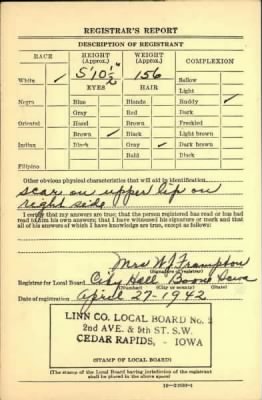 REGISTRAR'S REPORT
DESCRIPTION OF REGISTRANT
RACE HEIGHT (Approx.) WEIGHT (Approx.) COMPLEXION
5' 10½" 156
White ✓ EYES HAIR Sallow
Light
Negro Blue Blonde Ruddy ✓
Gray Red Dark
Oriental Hazel Brown Freckled
Brown ✓ Black Light brown
Indian Black Gray ✓ Dark brown
Bald Black
Filipino
Other obvious physical characteristics that will aid in identification
scar on upper lip on
right side
I certify that my answers are true; that the person registered has read or has had
read to him his own answers; that I have witnessed his signature or mark and that
all of his answers of which I have knowledge are true, except as follows:
Mrs W J Frampton
(Signature of registrar)
Registrar for Local Board City Hall Boone Iowa
(Number) (City or county) (State)
Date of registration April 27-1942
LINN CO. LOCAL BOARD No. 3
2nd AVE. & 5th ST. S.W.
CEDAR RAPIDS, - IOWA
(STAMP OF LOCAL BOARD)
(The stamp of the Local Board having jurisdiction of the registrant
shall be placed in the above space)